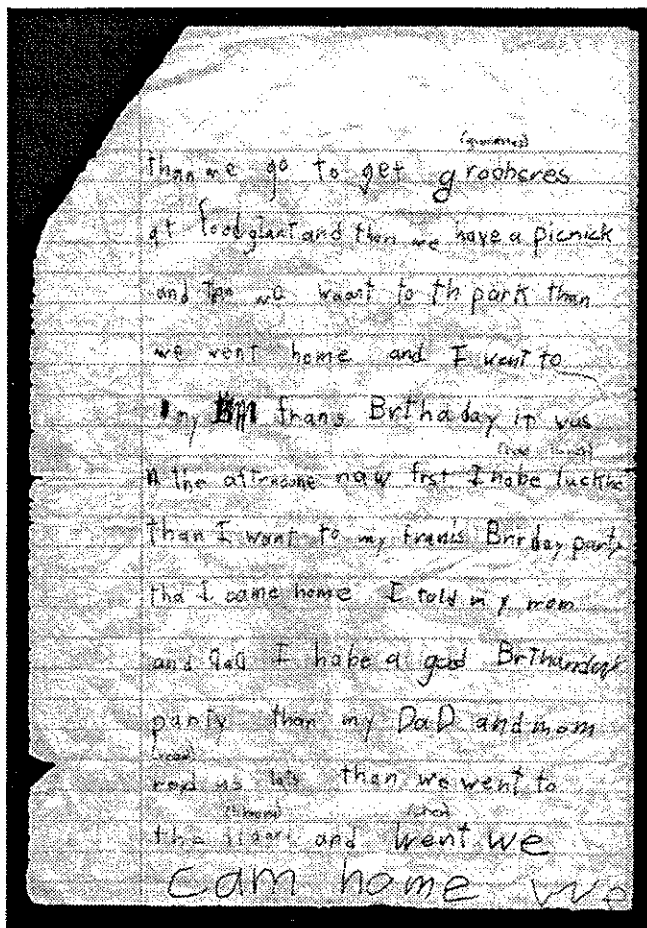 (groceries)
than we go to get groohcres
at food giant and than we have a picnick
and than we waant to th park than
we went home and I went to
my frans Brthaday it was
(had lunch)
the atternoune naw frst I habe luckhe
than I want to my frans Brrday party
tha I came home I told my mom
and daD I habe a god Brthundark
party than my DaD and mom
(read)
read us than we went to
(library) (when)
the and Went we
cam home we